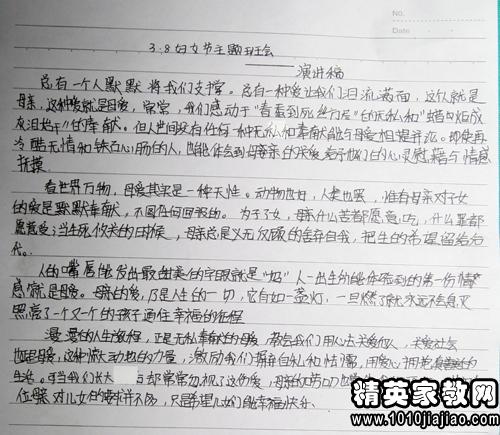 No.
Date
3.8妇女节主题班会
演讲稿
总有一个人默默将我们支撑。总有一种爱让我们泪流满面，这个人就是
母亲，这种爱就是母爱，常常，我们感动于"春蚕到死丝方尽"的无私和"蜡炬成
灰泪始干"的奉献。但人世间没有任何一种无私和奉献能与母爱相提并论。即使再
冷酷无情和铁石心肠的人，也能体会到母亲的关爱给予他们的心灵慰藉与情感
抚摸.
看世界万物，母爱其实是一种天性。动物也好，人类也罢，唯有母亲对子女
的爱是默默奉献，不图任何回报的。为了子女，母亲什么苦都愿意吃，什么罪都
愿意受；当生死攸关的时候，母亲总是义无反顾的舍弃自我，把生的希望留给后
代。
人的嘴唇能发出最甜美的字眼就是"妈"人一出生所能体验到的第一份情
感就是母爱。母亲的爱，乃是人生的一切，它宛如一盏灯，一旦燃了就永远不会息灭
照亮了一个又一个的孩子通往幸福的征程
漫漫的人生旅程，正是无私奉献的母爱，带给我们用心去关爱他人，关爱社会
也是母爱，这种惊天动地的力量，激励我们摒弃自私和怯懦，用爱心拥抱
生活。可当我们长大 却常常忽视了这份爱，母亲的
位母亲对儿女的要求并不多，只是希望儿女们能幸福快乐.
精英家教网
www.1010jiajiao.com